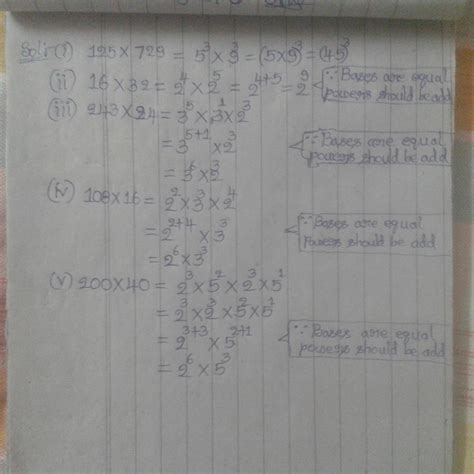 Sol:- (i) 125 × 729 = 5³ × 9³ = (5×9)³ = (45)³
(ii) 16 × 32 = 2⁴ × 2⁵ = 2⁴⁺⁵ = 2⁹ ∵ Bases are equal
powers should be add
(iii) 243 × 24 = 3⁵ × 3¹ × 2³
= 3⁵⁺¹ × 2³ ∵ Bases are equal
powers should be add
= 3⁶ × 2³
(iv) 108 × 16 = 2² × 3³ × 2⁴
= 2²⁺⁴ × 3³ ∵ Bases are equal
powers should be add
= 2⁶ × 3³
(v) 200 × 40 = 2³ × 5² × 2³ × 5¹
= 2³ × 2³ × 5² × 5¹
= 2³⁺³ × 5²⁺¹ ∵ Bases are equal
powers should be add
= 2⁶ × 5³